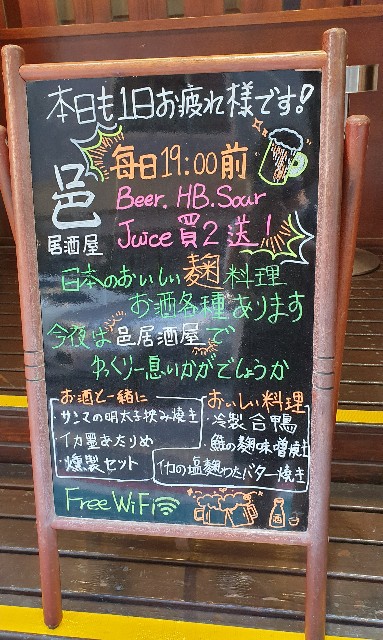 本日も1日お疲れ様です!
邑
居酒屋
毎日19:00前
Beer. HB. Sour
Juice 買2送1
日本のおいしい麹料理
お酒各種あります
今夜は邑居酒屋で
ゆっくり一息いかがでしょうか
お酒と一緒に
サンマの明太子挟み焼き
・イカ墨あたりめ
・燻製セット
おいしい料理
・冷製合鴨
・鮭の麹味噌焼き
イカの塩麹わたバター焼き
Free WiFi